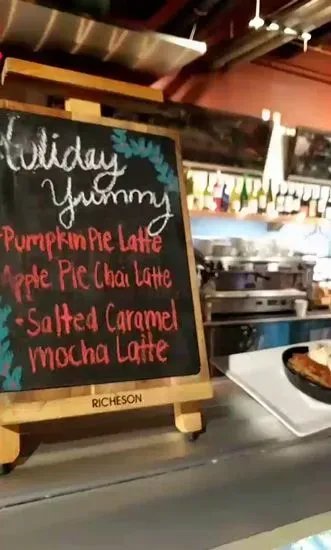 Holiday
Yummy
-Pumpkin Pie Latte
Apple Pie Chai Latte
•Salted Caramel
mocha Latte
RICHESON